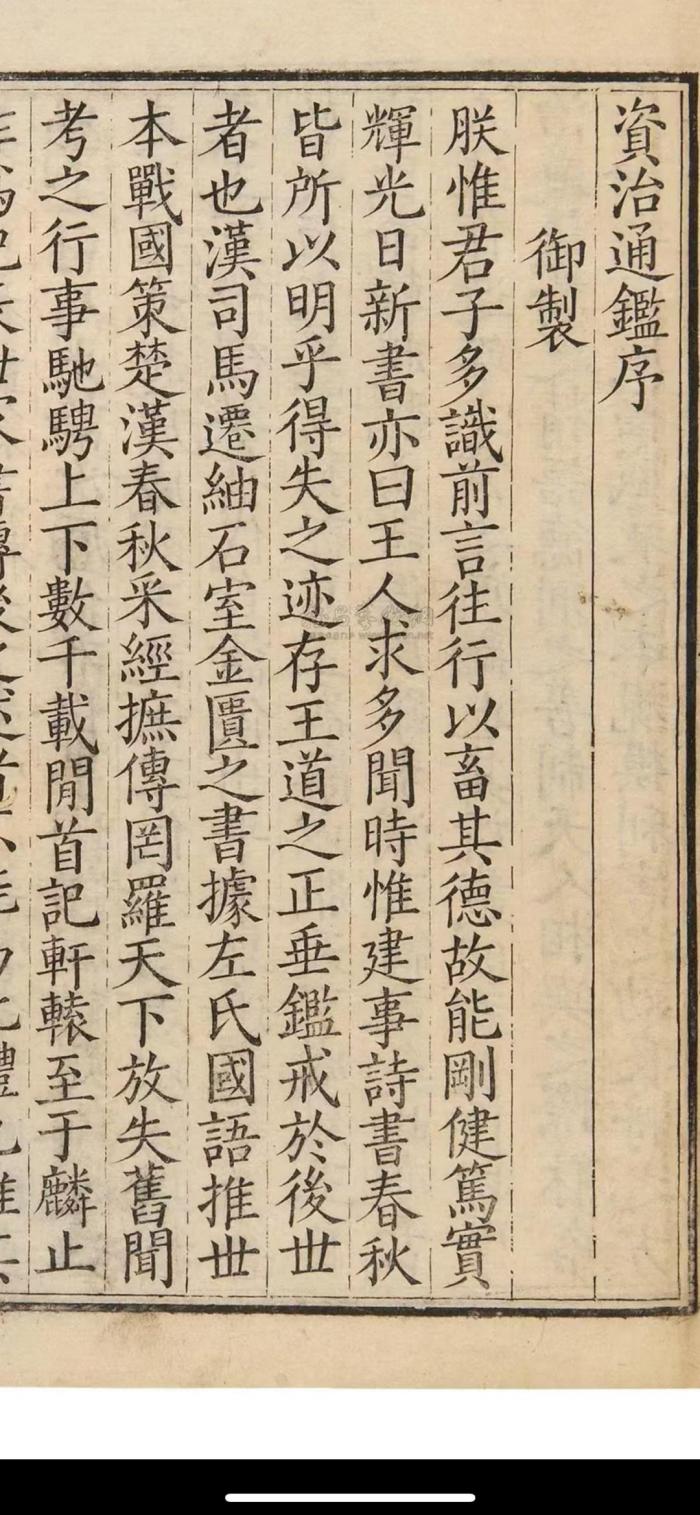 資治通鑑序
御製
朕惟君子多識前言往行以畜其德故能剛健篤實
輝光日新書亦曰王人求多聞時惟建事詩書春秋
皆所以明乎得失之迹存王道之正垂鑑戒於後世
者也漢司馬遷紬石室金匱之書據左氏國語推世
本戰國策楚漢春秋采經摭傳罔羅天下放失舊聞
考之行事馳騁上下數千載閒首記軒轅至于麟止